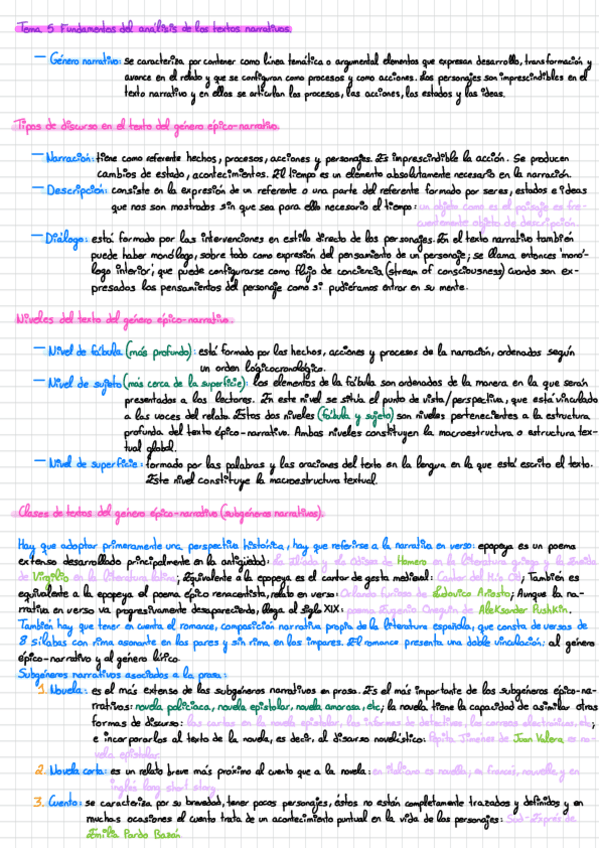 Tema 5 Fundamentos del análisis de los textos narrativos.
— Género narrativo: se caracteriza por contener como línea temática o argumental elementos que expresan desarrollo, transformación y
avance en el relato y que se configuran como procesos y como acciones. Los personajes son imprescindibles en el
texto narrativo y en ellos se articulan los procesos, las acciones, los estados y las ideas.
Tipos de discurso en el texto del género épico-narrativo.
— Narración: tiene como referente hechos, procesos, acciones y personajes. Es imprescindible la acción. Se producen
cambios de estado, acontecimientos. El tiempo es un elemento absolutamente necesario en la narración.
— Descripción: consiste en la expresión de un referente o una parte del referente formado por seres, estados e ideas
que nos son mostrados sin que sea para ello necesario el tiempo: un objeto como es el paisaje es fre-
cuentemente objeto de descripción.
— Diálogo: está formado por las intervenciones en estilo directo de los personajes. En el texto narrativo también
puede haber monólogo, sobre todo como expresión del pensamiento de un personaje; se llama entonces 'monó-
logo interior', que puede configurarse como flujo de conciencia (stream of consciousness) cuando son ex-
presados los pensamientos del personaje como si pudiéramos entrar en su mente.
Niveles del texto del género épico-narrativo.
— Nivel de fábula (más profundo): está formado por los hechos, acciones y procesos de la narración, ordenados según
un orden lógicocronológico.
— Nivel de sujeto (más cerca de la superficie): los elementos de la fábula son ordenados de la manera en la que serán
presentados a los lectores. En este nivel se sitúa el punto de vista/perspectiva, que está vinculado
a las voces del relato. Estos dos niveles (fábula y sujeto) son niveles pertenecientes a la estructura
profunda del texto épico-narrativo. Ambos niveles constituyen la macroestructura o estructura tex-
tual global.
— Nivel de superficie: formado por las palabras y las oraciones del texto en la lengua en la que está escrito el texto.
Este nivel constituye la macroestructura textual.
Clases de textos del género épico-narrativo (subgéneros narrativos).
Hay que adoptar primeramente una perspectiva histórica, hay que referirse a la narrativa en verso: epopeya es un poema
extenso desarrollado principalmente en la antigüedad: la Ilíada y la Odisea de Homero en la literatura griega y la Eneida
de Virgilio en la literatura latina; Equivalente a la epopeya es el cantar de gesta medieval: Cantar del Mio Cid; También es
equivalente a la epopeya el poema épico renacentista, relato en verso: Orlando Furioso de Ludovico Ariosto; Aunque la na-
rrativa en verso va progresivamente desapareciendo, llega al siglo XIX: poema Eugenio Oneguin de Aleksander Pushkin.
También hay que tener en cuenta el romance, composición narrativa propia de la literatura española, que consta de versos de
8 sílabas con rima asonante en los pares y sin rima en los impares. El romance presenta una doble vinculación: al género
épico-narrativo y al género lírico.
Subgéneros narrativos asociados a la prosa:
1. Novela: es el más extenso de los subgéneros narrativos en prosa. Es el más importante de los subgéneros épico-na-
rrativos: novela policíaca, novela epistolar, novela amorosa, etc; la novela tiene la capacidad de asimilar otras
formas de discurso: las cartas en la novela epistolar, los informes de detectives, los correos electrónicos, etc;
e incorporarlos al texto de la novela, es decir, al discurso novelístico: Pepita Jiménez de Juan Valera es no-
vela epistolar.
2. Novela corta: es un relato breve más próximo al cuento que a la novela: en italiano es novella, en francés, nouvelle y en
inglés long short story.
3. Cuento: se caracteriza por su brevedad, tener pocos personajes, éstos no están completamente trazados y definidos y en
muchas ocasiones el cuento trata de un acontecimiento puntual en la vida de los personajes: Sud-Exprés de
Emilia Pardo Bazán